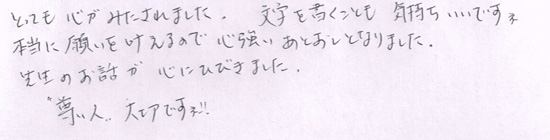 とっても心がみたされました。 文字を書くことも気持ちいいですネ
本当に願いを叶えるので心強いあとおしとなりました。
先生のお話が心にひびきました。
"尊い人"、大工アですネ!!